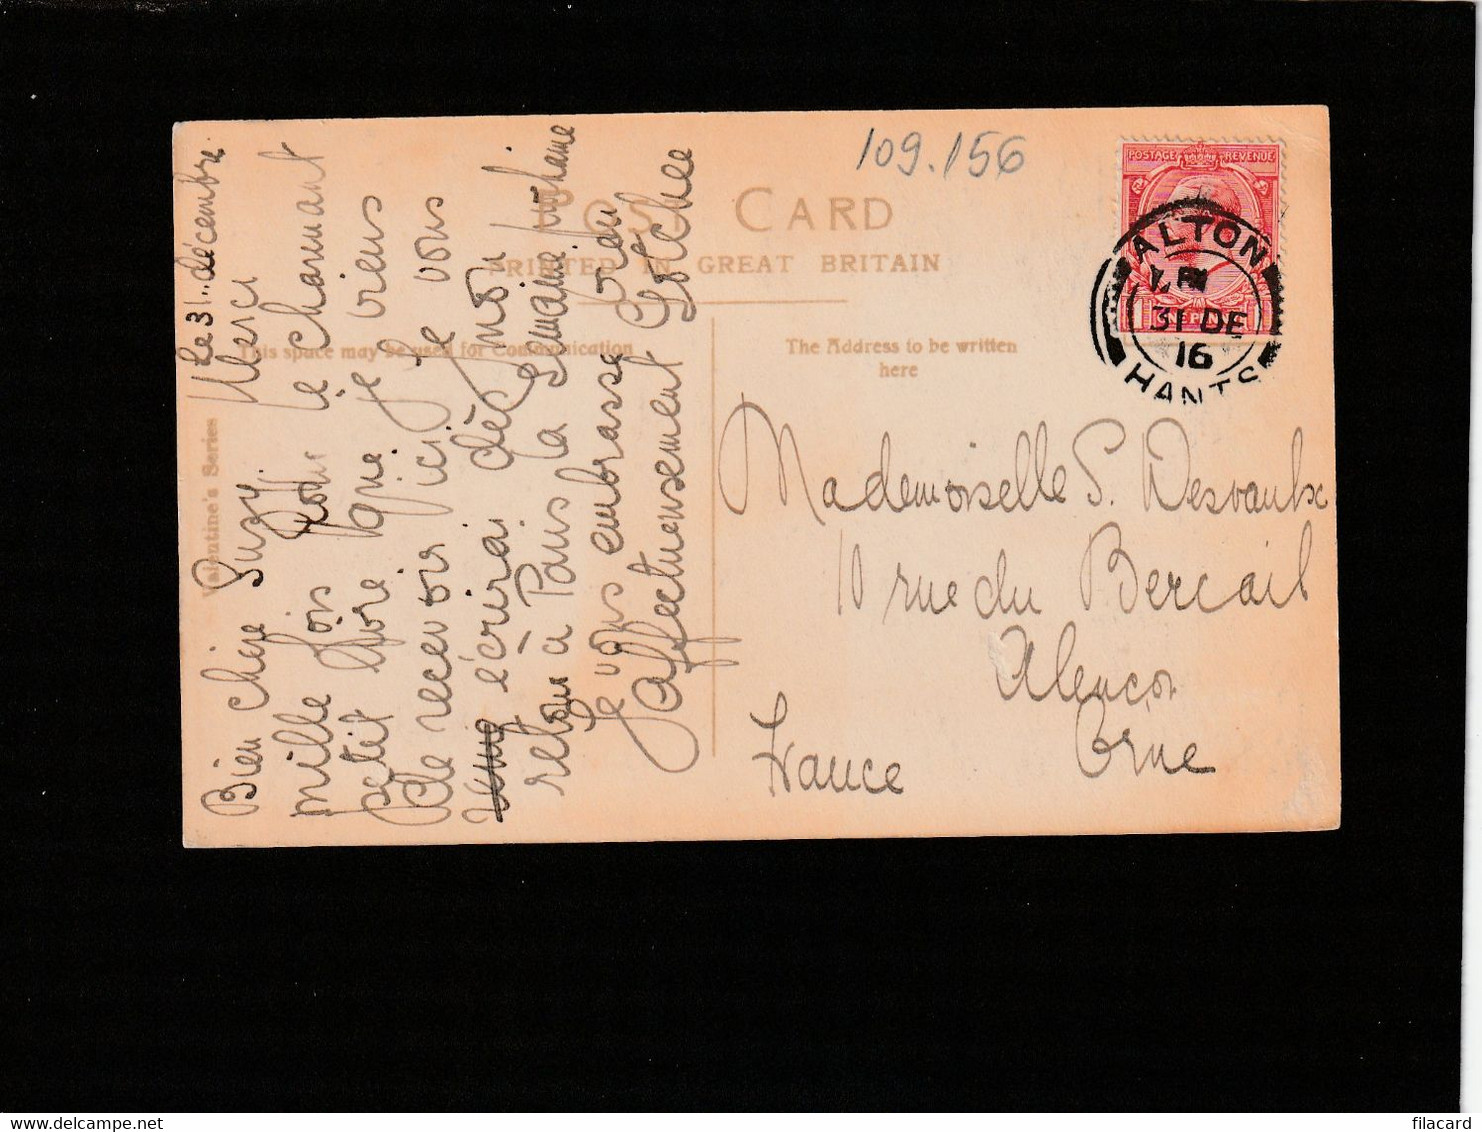 Le 31. décembre
Bien chère Suzy. Merci
mille fois pour le charmant
petit livre que je viens
de recevoir ici. Je vous
écrirai dès mon
retour à Paris la semaine prochaine
Je vous embrasse bien
affectueusement
Valentine's Series
109.156
POST CARD
PRINTED IN GREAT BRITAIN
This space may be used for Communication
The Address to be written
here
POSTAGE REVENUE
ONE PENNY
ALTON
31 DE
16
HANTS
Mademoiselle S. Desvaulx
10 rue du Bercail
Alençon
Orne
France
filacard